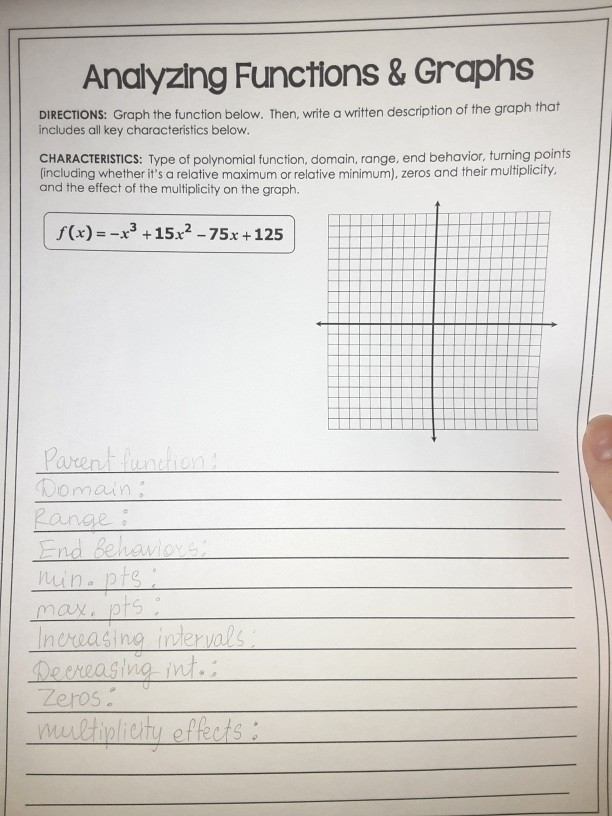 Analyzing Functions & Graphs
DIRECTIONS: Graph the function below. Then, write a written description of the graph that
includes all key characteristics below.
CHARACTERISTICS: Type of polynomial function, domain, range, end behavior, turning points
(including whether it's a relative maximum or relative minimum), zeros and their multiplicity,
and the effect of the multiplicity on the graph.
f(x) = -x³ + 15x² - 75x + 125
Parent function:
Domain:
Range:
End Behaviors:
min. pts:
max. pts:
Increasing intervals:
Decreasing int.:
Zeros:
multiplicity effects: